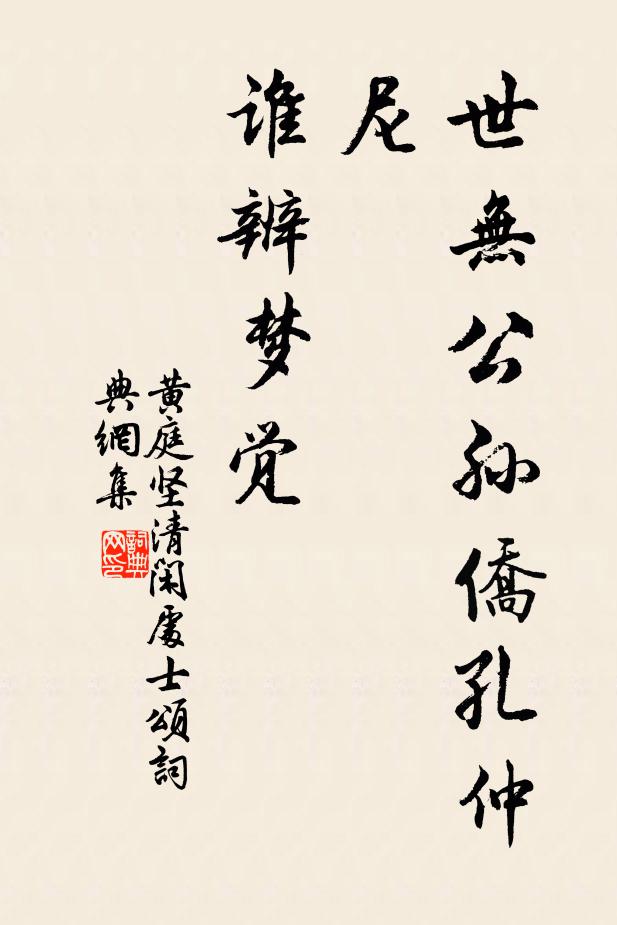 世無公孙僑孔仲
尼
谁辨梦觉
黄庭坚清閑處士頌詞
典網集
詞典
网印